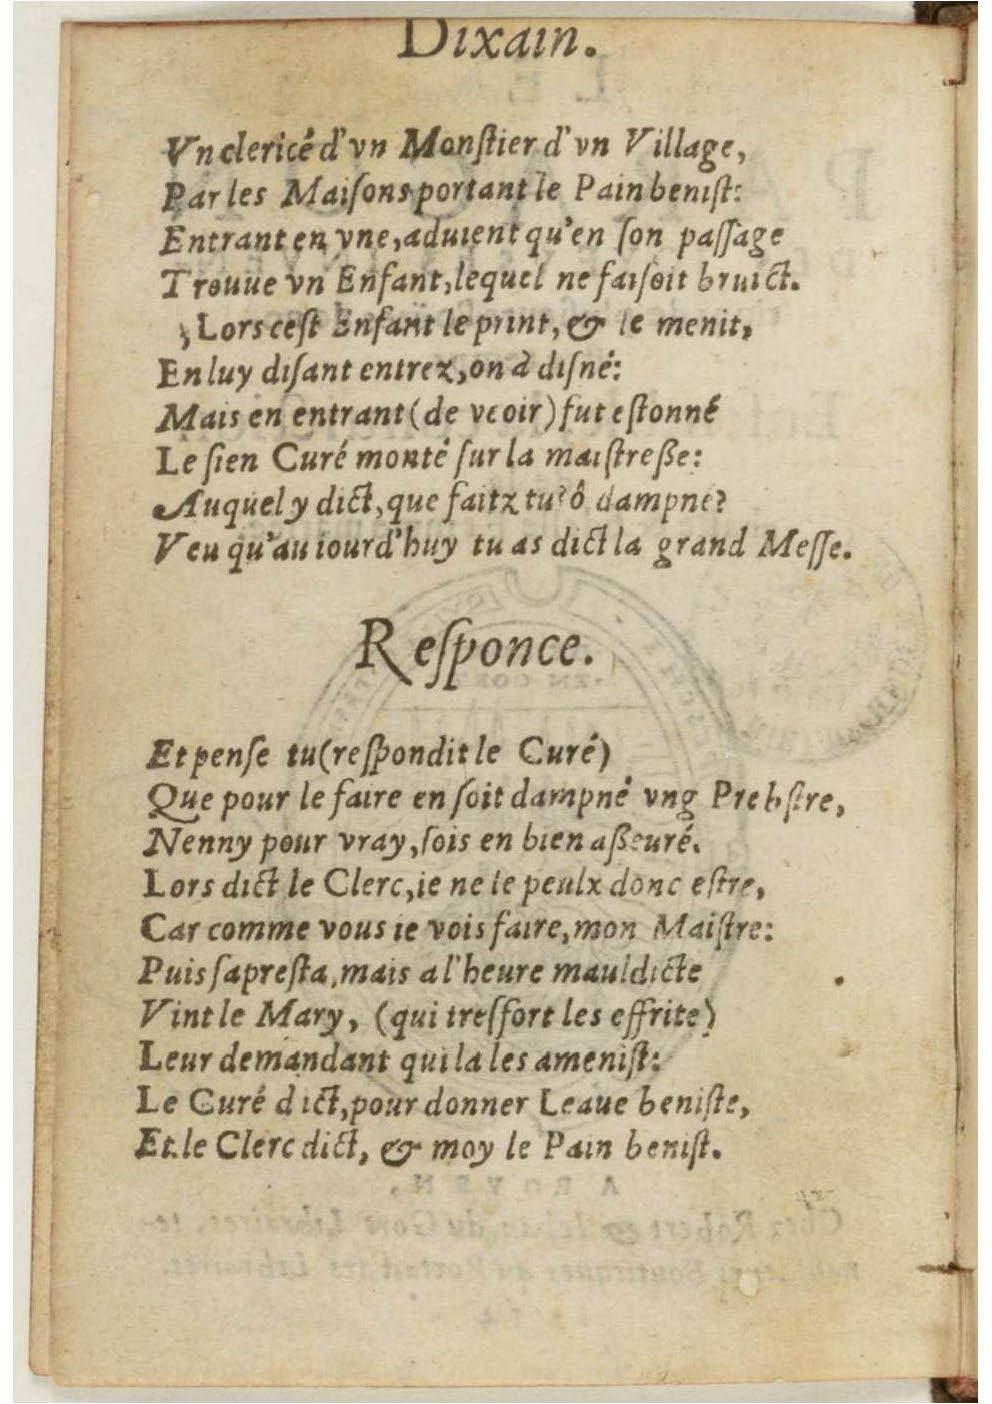 Dixain.
Vn clericé d'vn Monſtier d'vn Village,
Par les Maiſons portant le Pain beniſt:
Entrant en vne, aduient qu'en ſon paſſage
Trouue vn Enfant, lequel ne faiſoit bruict.
Lors ceſt Enfant le print, & le menit,
En luy diſant entrez, on à diſné:
Mais en entrant (de veoir) fut eſtonné
Le ſien Curé monté ſur la maiſtreße:
Auquel y dict, que faitz tu? ô dampné?
Veu qu'au iourd'huy tu as dict la grand Meſſe.
Reſponce.
Et penſe tu (reſpondit le Curé)
Que pour le faire en ſoit dampné vng Prebſtre,
Nenny pour vray, ſois en bien aßeuré.
Lors dict le Clerc, ie ne le peulx donc eſtre,
Car comme vous ie vois faire, mon Maiſtre:
Puis ſapreſta, mais a l'heure mauldicte
Vint le Mary, (qui treſfort les effrite)
Leur demandant qui la les ameniſt:
Le Curé dict, pour donner Leaue beniſte,
Et le Clerc dict, & moy le Pain beniſt.